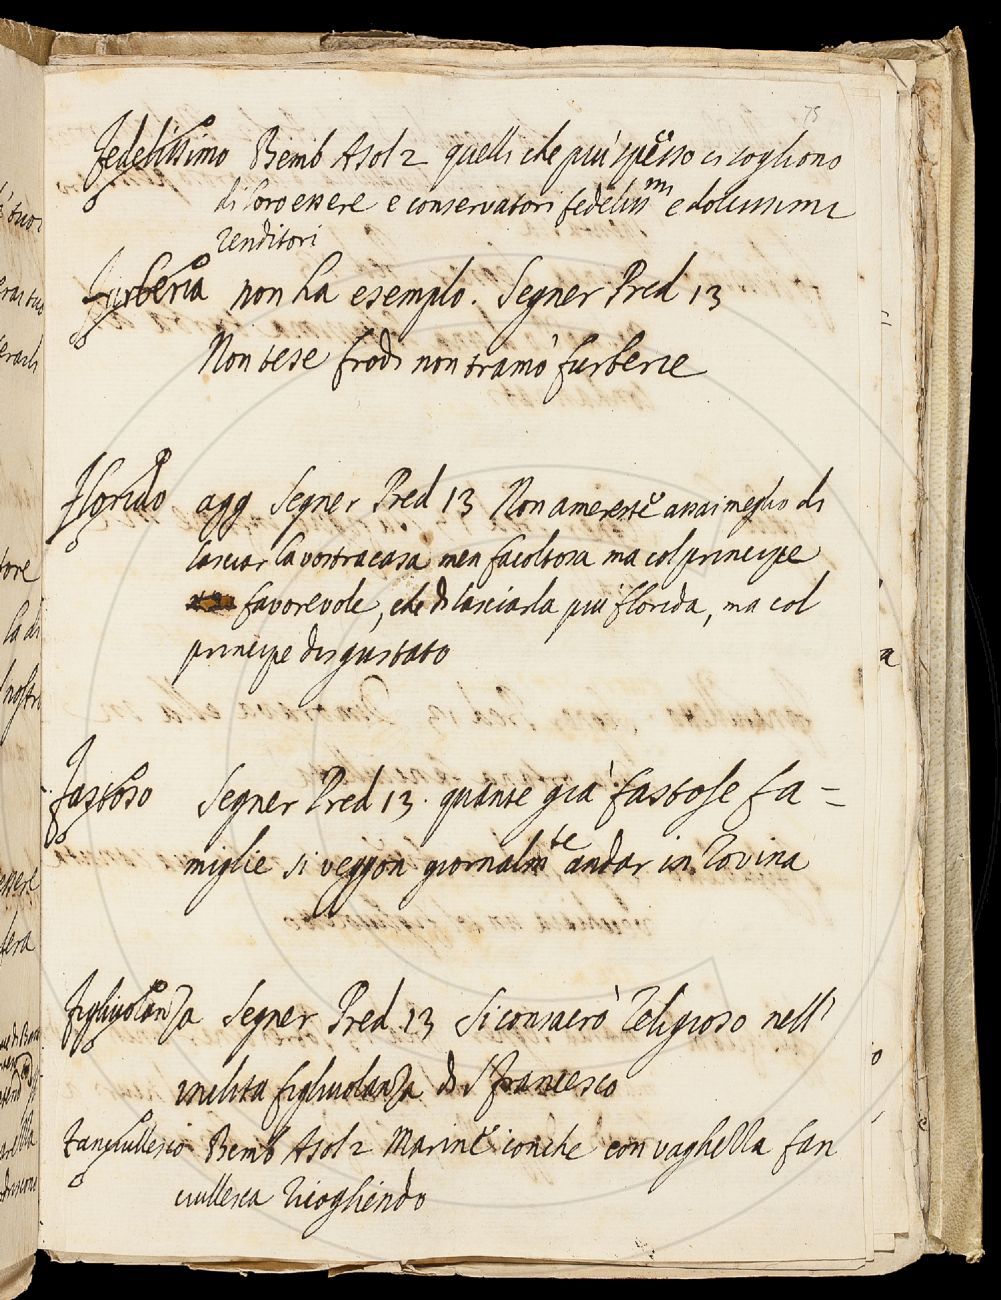 75
Fedelissimo Bemb Asol 2 quelli che più spesso ci cogliono
di loro essere e conservatori fedeliss.mi e dolcissimi
renditori
Furberia non ha esempio. Segner Pred 13
Non tese frodi non tramò furberie
Florido agg Segner Pred 13 Non amereste assai meglio di
lasciar la vostra casa men facoltosa ma col principe
favorevole, che di lasciarla più florida, ma col
principe disgustato
Fastoso Segner Pred 13. quante già fastose fa=
miglie si veggon giornalm.te andar in rovina
Figliuolanza Segner Pred 13 Si consacrò Religioso nell'
inclita figliuolanza di S Francesco
Fanciullesco Bemb Asol 2 conche con vaghezza fan
ciullesca ricogliendo